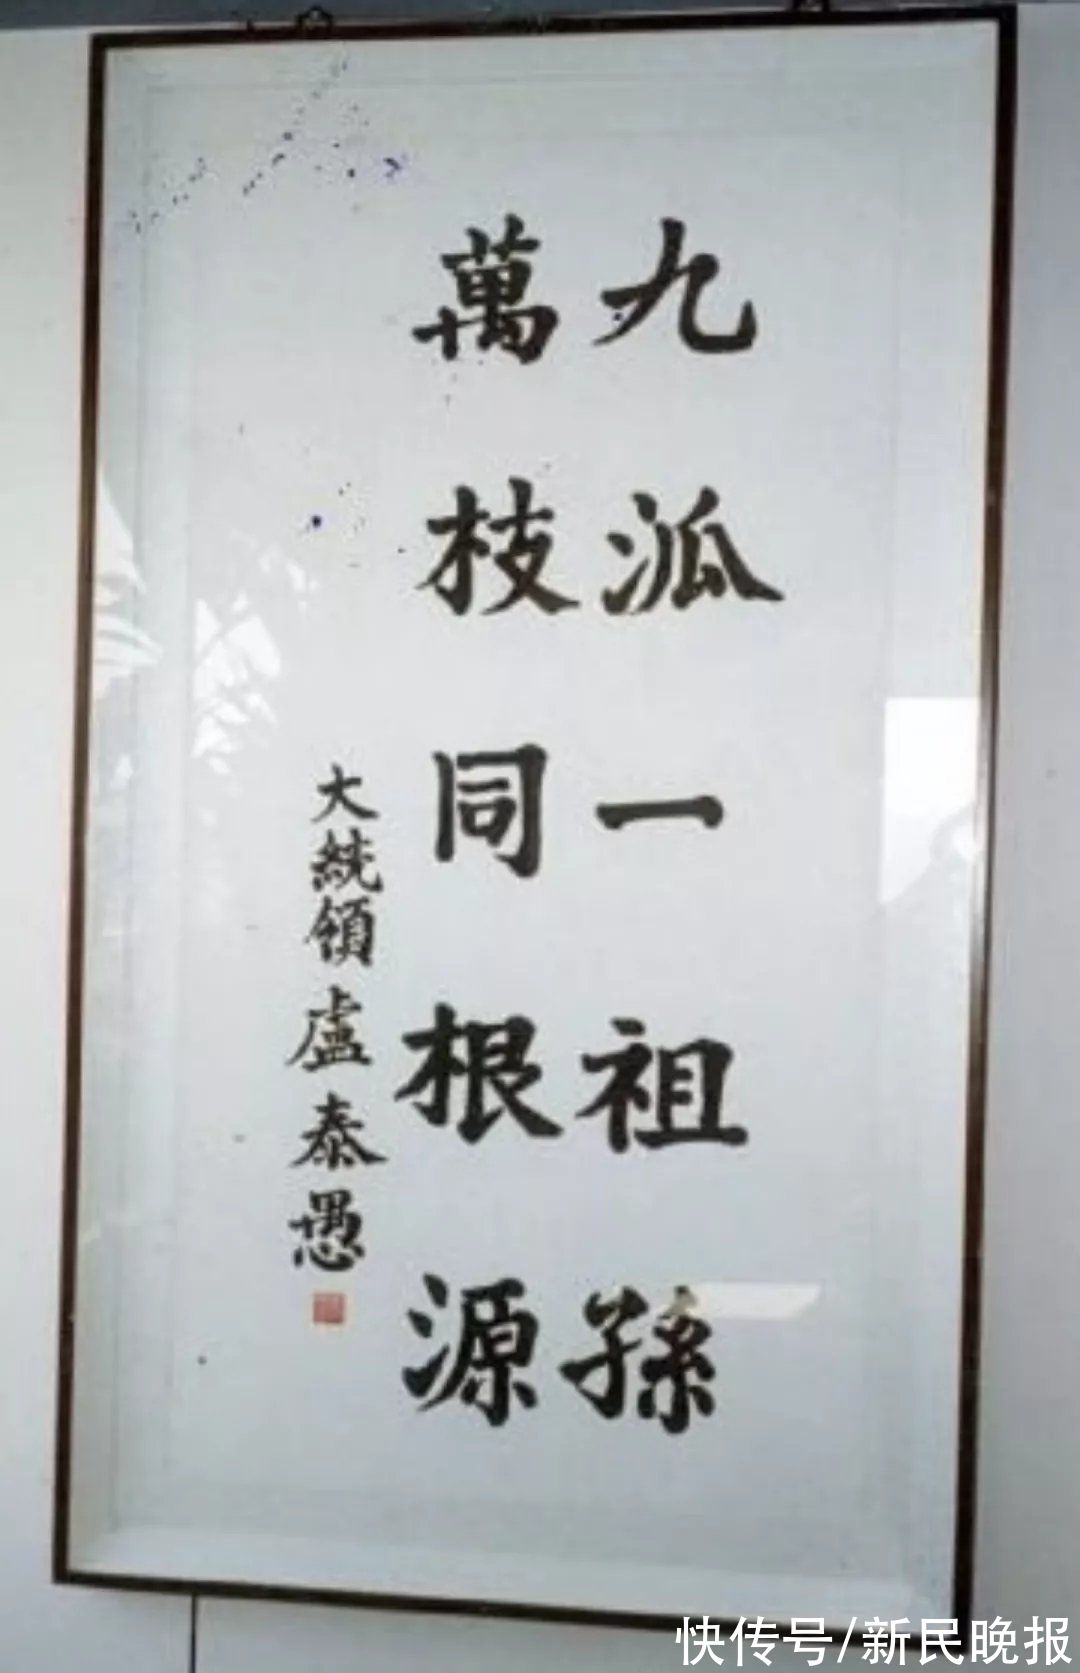 九泒一祖孫
萬枝同根源
大統領盧泰愚
快传号/新民晚报